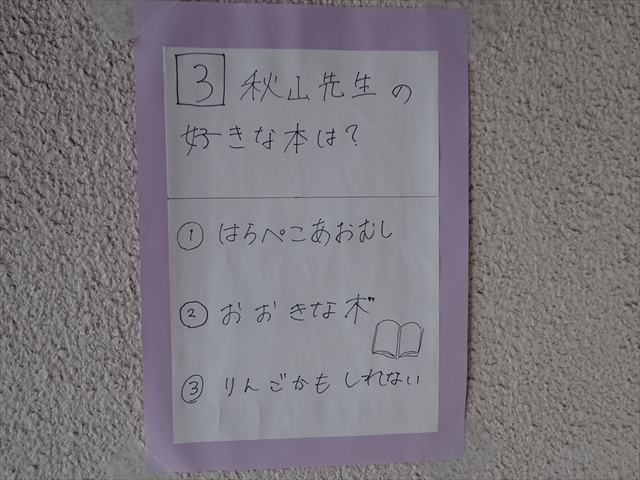 3 秋山先生の
好きな本は?
① はらぺこあおむし
② おおきな木"
③ りんごかもしれない